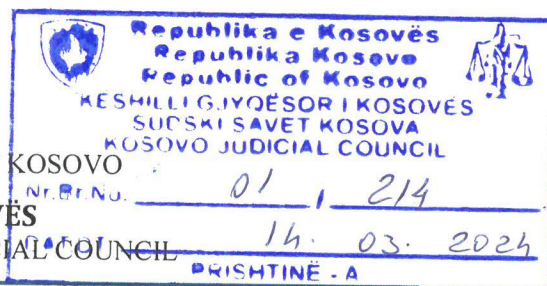 Republika e Kosovës
Republika Kosovo
Republic of Kosovo
KËSHILLI GJYQËSOR I KOSOVËS
SUDSKI SAVET KOSOVA
KOSOVO JUDICIAL COUNCIL
KOSOVO
Nr.Br.No. 01 / 214
ËS
IAL COUNCIL 14. 03. 2024
PRISHTINË - A